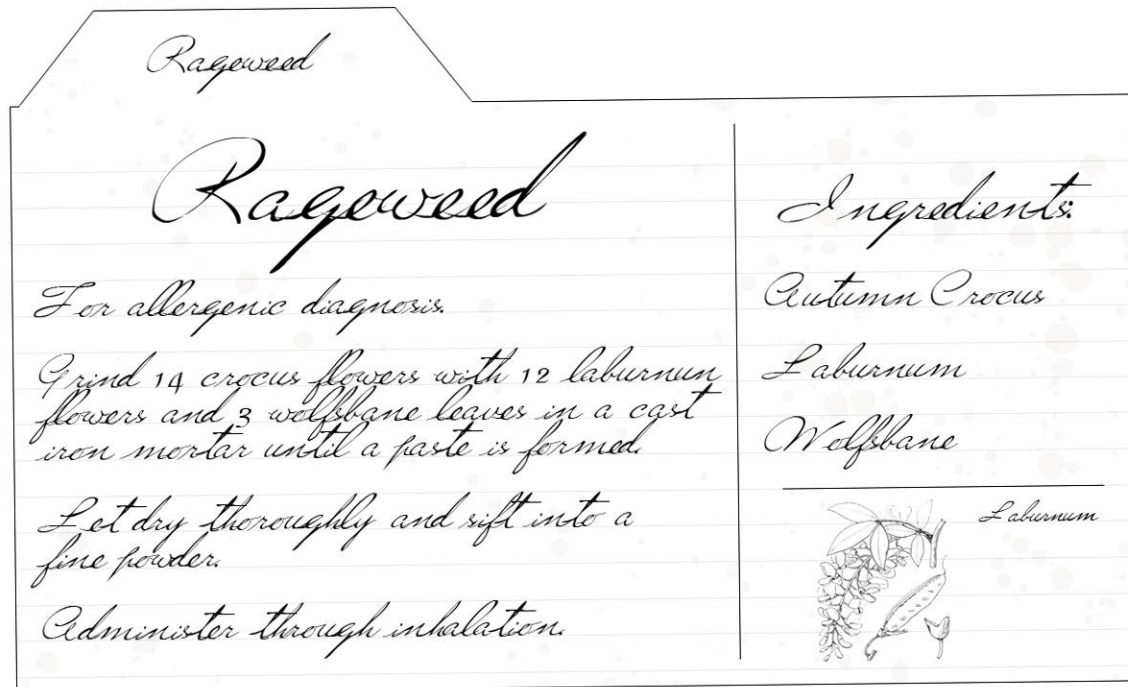 Rageweed
Rageweed
For allergenic diagnosis.
Grind 14 crocus flowers with 12 laburnun
flowers and 3 wolfsbane leaves in a cast
iron mortar until a paste is formed.
Let dry thoroughly and sift into a
fine powder.
Administer through inhalation.
Ingredients:
Autumn Crocus
Laburnum
Wolfsbane
Laburnum